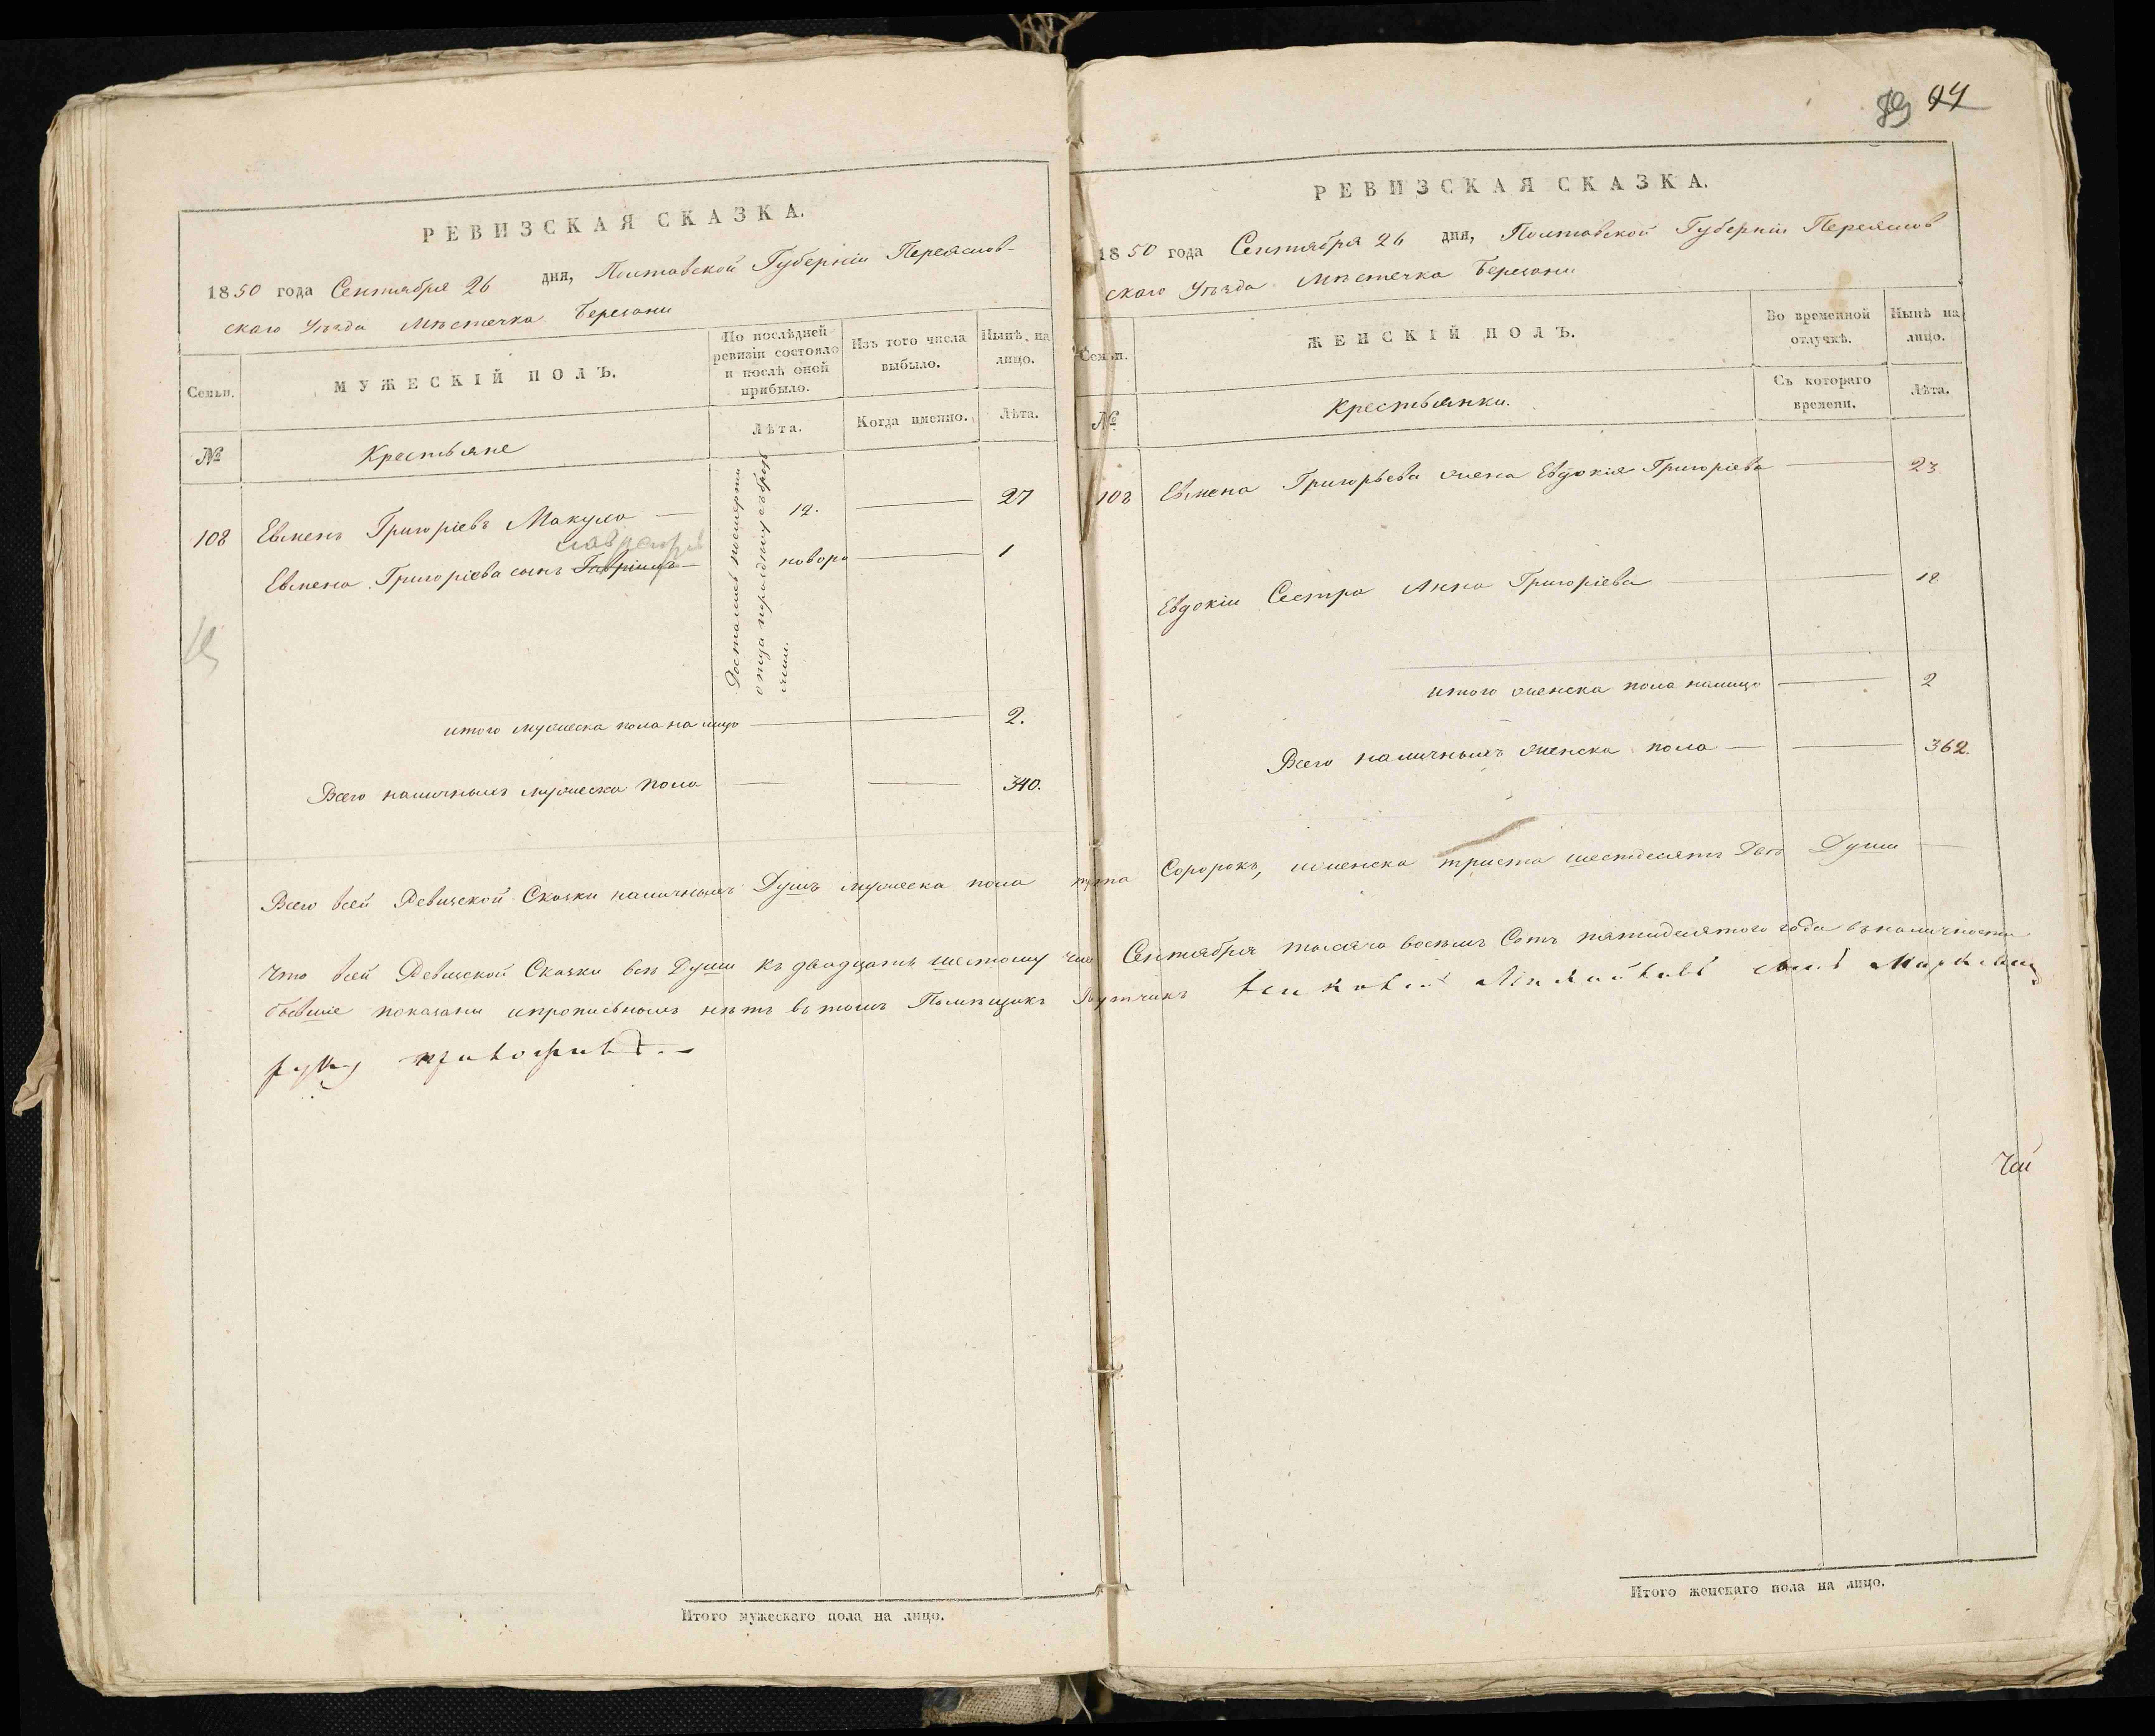 РЕВИЗСКАЯ СКАЗКА.
1850 года Сентября 26 дня, Полтавской Губерніи Переяслов-
скаго Уѣзда Мѣстечка Березани
Семьи.
МУЖЕСКІЙ ПОЛЪ.
По послѣдней ревизіи состояло и послѣ оной прибыло.
Изъ того числа выбыло.
Нынѣ на лицо.
№
Крестьяне
Лѣта.
Когда именно.
Лѣта.
108 Евменъ Григоріевъ Макуло — 12. — 27
Евмена Григоріева сынъ Гавріилъ — новоро — 1
Достались посмерти
отца
итого мужеска пола на лицо — 2.
Всего наличныхъ мужеска пола — — 340.
Итого мужескаго пола на лицо.
89 94
РЕВИЗСКАЯ СКАЗКА.
1850 года Сентября 26 дня, Полтавской Губерніи Переяслов
скаго Уѣзда Мѣстечка Березани
Семьи.
ЖЕНСКІЙ ПОЛЪ.
Во временной отлучкѣ.
Нынѣ на лицо.
№
Крестьянки.
Съ котораго времени.
Лѣта.
108 Евмена Григорьева жена Евдокія Григоріева — 23
Евдокіи Сестра Анна Григоріева — 18
итого женска пола налицо — 2
Всего наличныхъ женска пола — — 362.
Всего всей Ревизской Сказки наличныхъ Душъ мужеска пола триста Соророкъ, женска триста шестдесятъ Двѣ Души —
Что всей Ревизской Сказки всѣ Души къ двадцать шестому Сентября тысяча восемь Сотъ пятидесятого года въ наличности
бывшіе показаны и прописныхъ нѣтъ въ томъ Помѣщикъ
руку приложилъ. —
Итого женскаго пола на лицо.